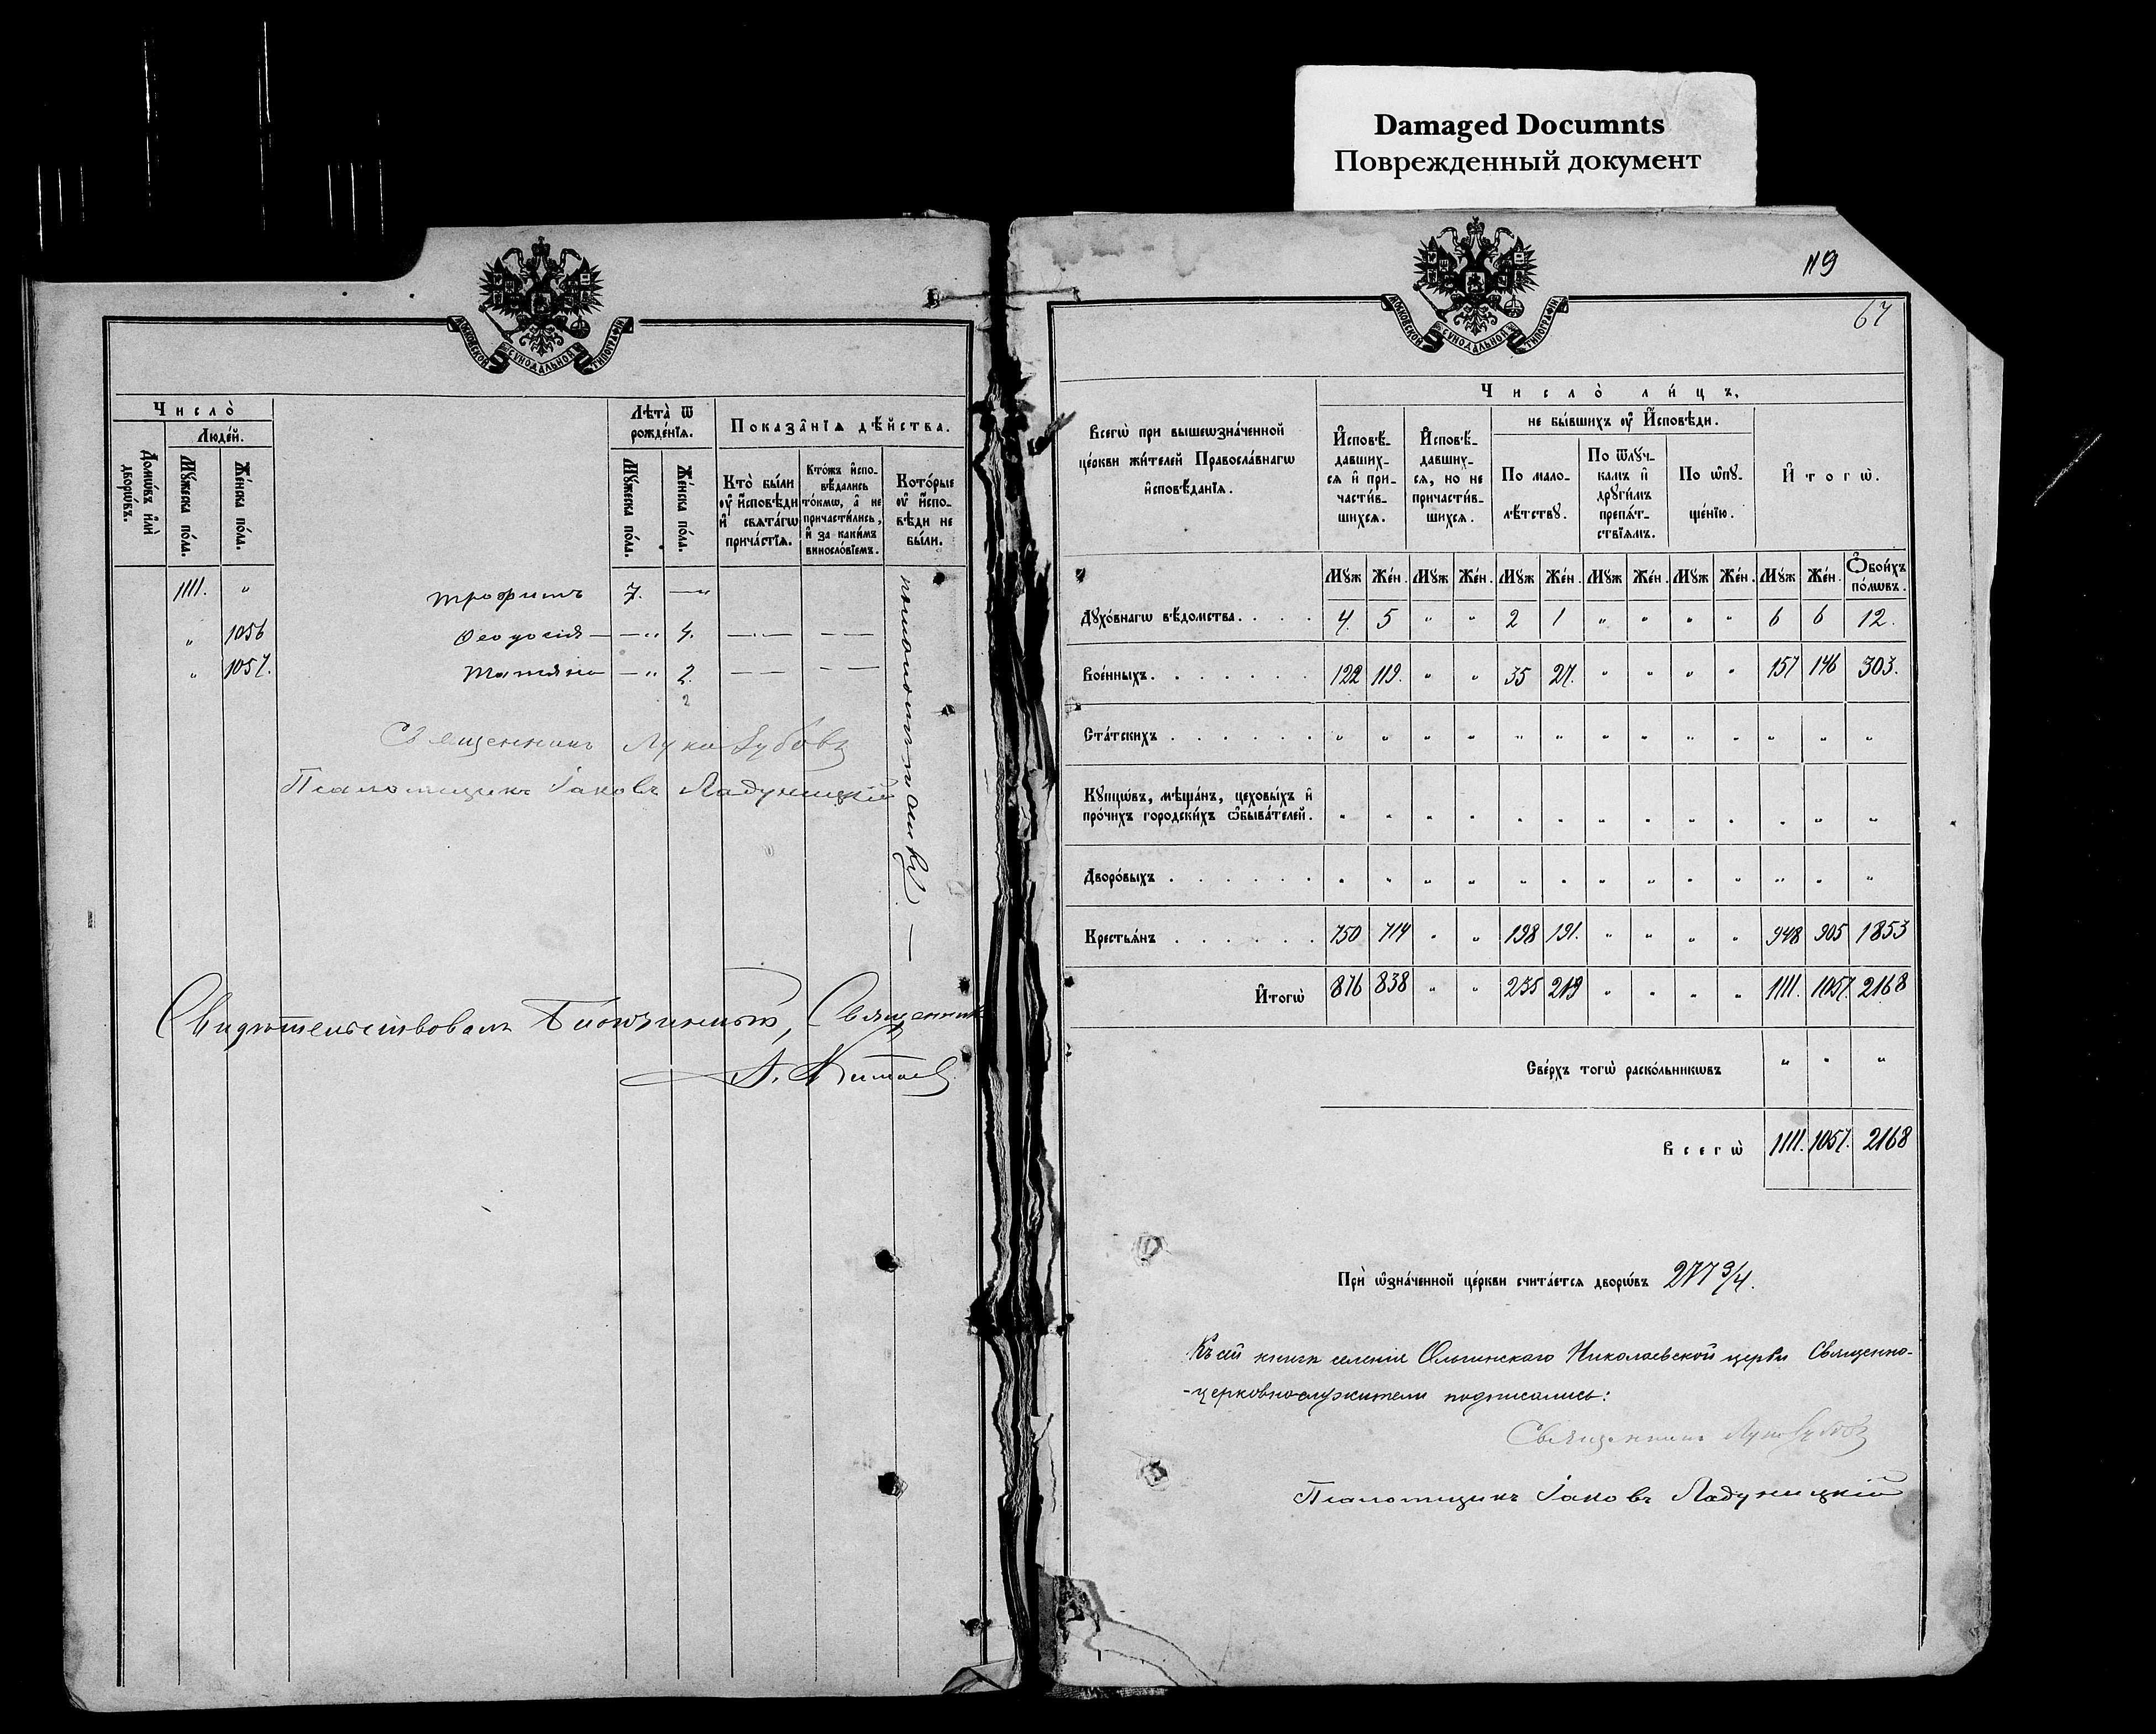 Damaged Documnts
Поврежденный документ
МОСКОВСКОЙ СѴНОДАЛЬНОЙ ТИПОГРАФІИ
Число̀
Люде́й.
Домѡ́въ и҆лѝ дворѡ́въ.
Мꙋ́жеска по́ла.
Же́нска по́ла.
Лѣта̀ ѿ рожде́нїѧ.
Мꙋ́жеска по́ла.
Же́нска по́ла.
Показа̑нїѧ дѣ́йства.
Кто̀ бы́ли ᲂу҆ и҆сповѣди и҆ свѧта́гѡ прича́стїѧ.
Кто́жъ и҆сповѣдались то́кмѡ, а҆ не причасти́лись, и҆ за каки́мъ винослові́емъ.
Кото́рые ᲂу҆ и҆сповѣди не бы́ли.
1111. „ Трофимъ 7. — „
„ 1056 Ѳеодосія — — „ 4. — — — —
„ 1057. Татьяна — „ 2. — — — —
2
Священникъ Лука Зубовъ
Псаломщикъ Іаковъ Ладуницкій
Свидѣтельствовалъ Благочинный, Священникъ
А. Китаевъ
119
67
МОСКОВСКОЙ СѴНОДАЛЬНОЙ ТИПОГРАФІИ
Число̀ ли́цъ.
Всегѡ̀ при вышеѡзна́ченной це́ркви жи́телей Правосла́внагѡ и҆сповѣ́данїѧ.
И҆сповѣ́давшихсѧ и҆ причасти́вшихсѧ.
И҆сповѣ́давшихсѧ, но не причасти́вшихсѧ.
не бы́вшихъ ᲂу҆ И҆сповѣди.
По малолѣ́тствꙋ.
По ѿлꙋ́чкамъ и҆ дрꙋги́мъ препѧ́тствїѧмъ.
По ѡ҆пꙋще́нїю.
И҆тогѡ̀.
Мꙋж Же́н. Мꙋж Же́н. Мꙋж Же́н. Мꙋж Же́н. Мꙋж Же́н. Мꙋж Же́н. Ѻ҆бои́хъ по́лѡвъ.
Дꙋхо́внагѡ вѣ́домства. . . . 4. 5 „ „ 2 1 „ „ „ „ 6 6 12.
Вое́нныхъ. . . . . . . 122 119. „ „ 35 27. „ „ „ „ 157 146 303.
Ста́тскихъ . . . . . . „ „ „ „ „ „ „ „ „ „ „ „ „
Кꙋпцѡ́въ, мѣща́нъ, цеховы́хъ и҆
про́чихъ городски́хъ ѡ҆быва́телей. „ „ „ „ „ „ „ „ „ „ „ „ „
Дворо́выхъ . . . . . . „ „ „ „ „ „ „ „ „ „ „ „ „
Крестьѧ́нъ . . . . . . 750 714 „ „ 198 191. „ „ „ „ 948 905 1853
И҆тогѡ̀ 876 838 „ „ 235 219 „ „ „ „ 1111. 1057. 2168
Све́рхъ тогѡ̀ раско́льникѡвъ „ „ „
Всегѡ̀ 1111. 1057. 2168
Прѝ ѡ҆зна́ченной це́ркви счита́етсѧ дворѡ́въ 277 3/4.
Къ сей книгѣ селенія Ольгинскаго Николаевской церкви Священно-
-церковнослужители подписались:
Священникъ Лука Зубовъ
Псаломщикъ Іаковъ Ладуницкій